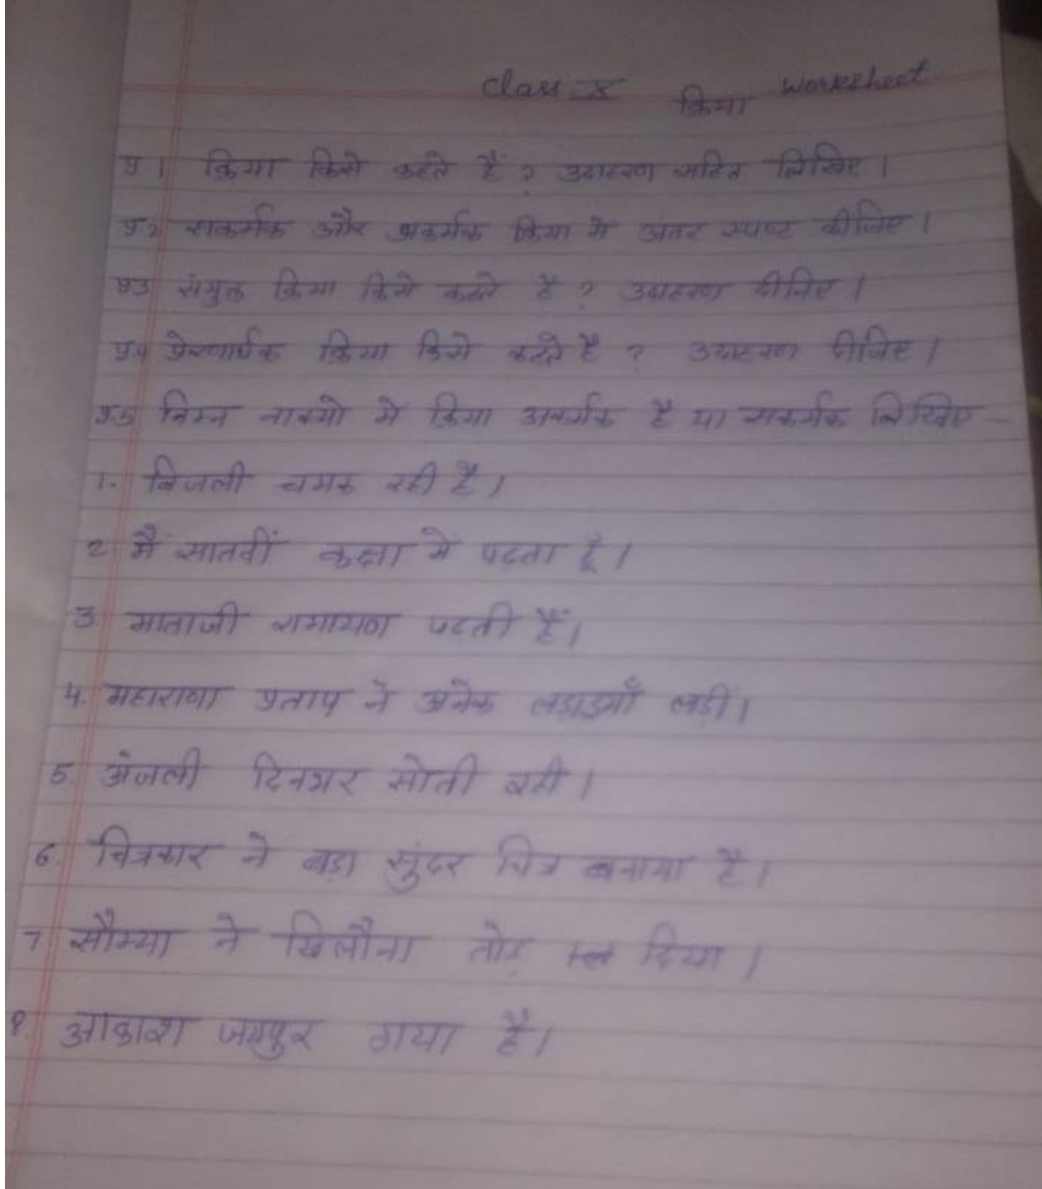 Class X क्रिया Worksheet
प्र1 क्रिया किसे कहते हैं ? उदाहरण सहित लिखिए ।
प्र2 सकर्मक और अकर्मक क्रिया में अंतर स्पष्ट कीजिए ।
प्र3 संयुक्त क्रिया किसे कहते है ? उदाहरण दीजिए ।
प्र4 प्रेरणार्थक क्रिया किसे कहते है ? उदाहरण दीजिए ।
प्र5 निम्न वाक्यो में क्रिया अकर्मक है या सकर्मक लिखिए -
1. बिजली चमक रही है ।
2 मैं सातवीं कक्षा में पढता हूँ ।
3. माताजी रामायण पढती हैं ।
4. महाराणा प्रताप ने अनेक लड़ाइयाँ लड़ी ।
5 अंजली दिनभर सोती रही ।
6. चित्रकार ने बड़ा सुंदर चित्र बनाया है ।
7 सौम्या ने खिलौना तोड़ दिया ।
8. आकाश जयपुर गया है ।